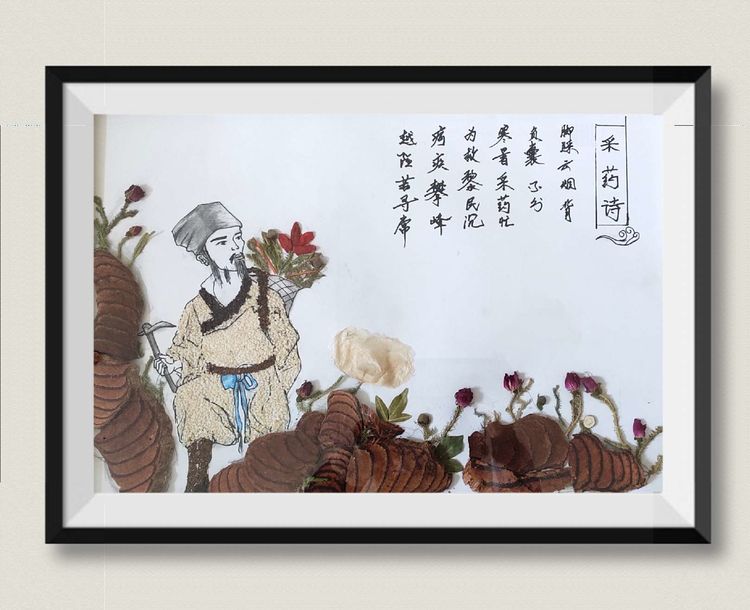 采药诗
脚踩云烟背
负囊不分
寒暑采药忙
为救黎民沉
疴疾攀峰
越险若寻常